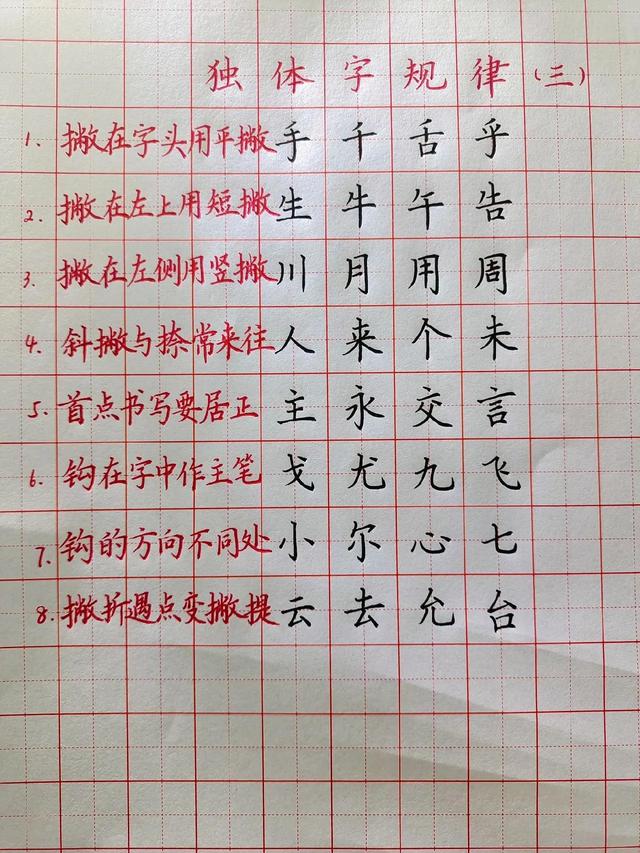 独体字规律（三）
1. 撇在字头用平撇 手 千 舌 乎
2. 撇在左上用短撇 生 牛 午 告
3. 撇在左侧用竖撇 川 月 用 周
4. 斜撇与捺常来往 人 来 个 未
5. 首点书写要居正 主 永 交 言
6. 钩在字中作主笔 戈 尤 九 飞
7. 钩的方向不同处 小 尔 心 七
8. 撇折遇点变撇提 云 去 允 台